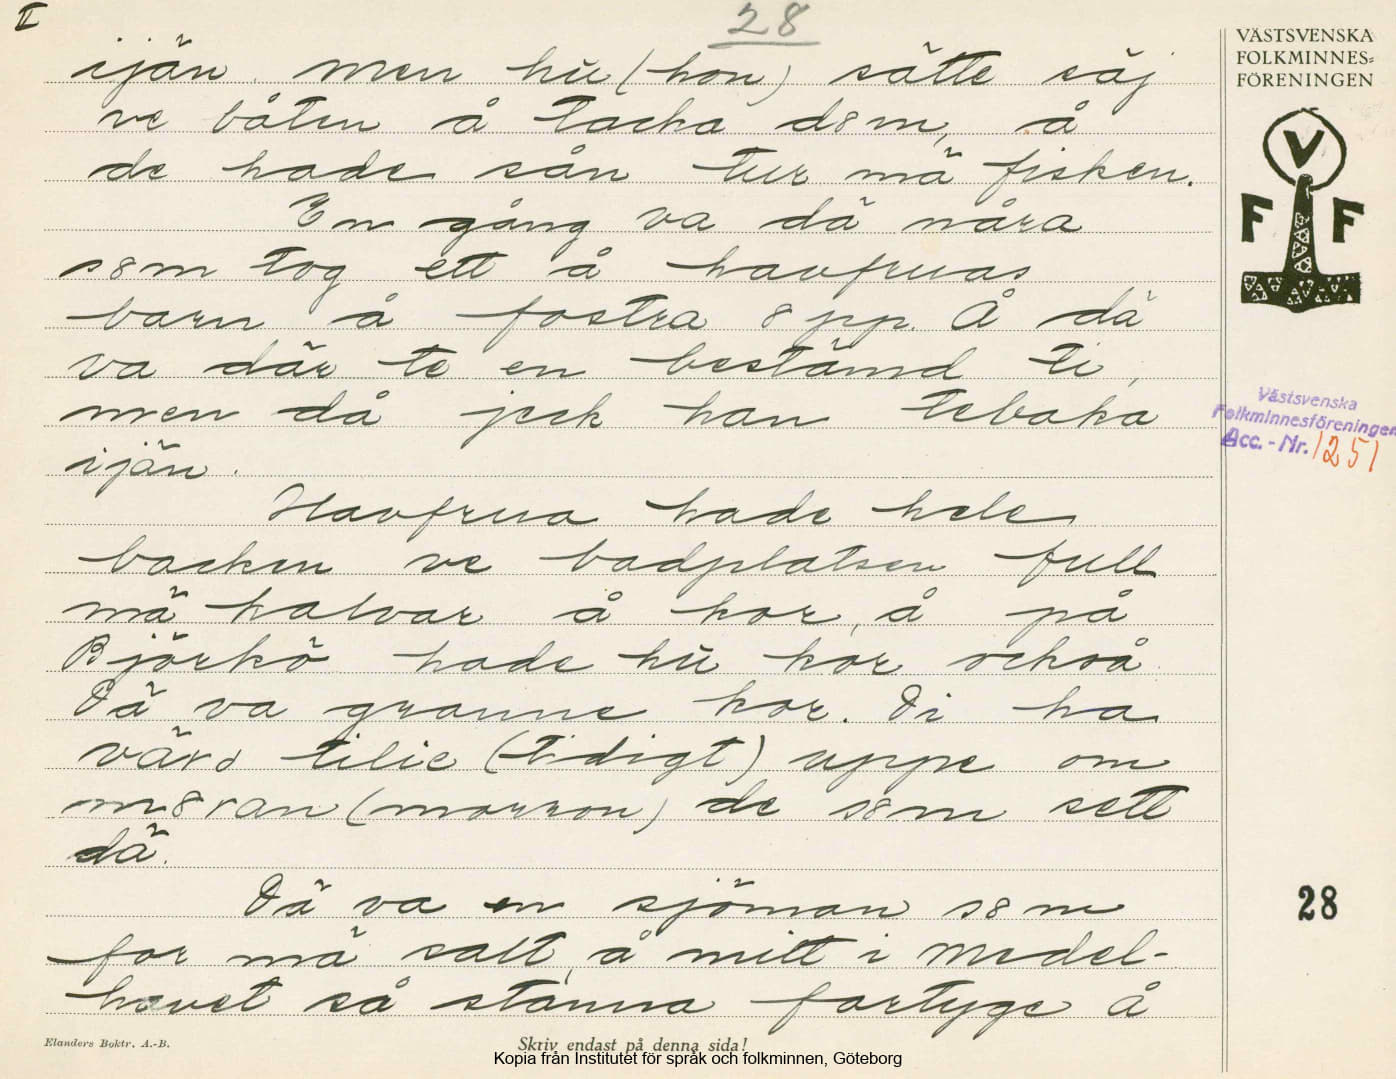 II
28
ijän. Men hu (hon) sätte säj
ve båten å tacka d8m, å
de hade sån tur mä fisken.
En gång va dä nåra
s8m tog ett å havfruas
barn å fostra 8pp. Å dä
va där te en bestämd ti,
men då jeck han tebaka
ijän.
Havfrua hade hele
backen ve badplatsen full
mä kalvar å kor, å på
Björkö hade hu kor också
Dä va granne kor. Di ha
värs tilie (tidigt) uppe om
m8ran (morron) de s8m sett
dä.
Dä va en sjöman s8m
for mä salt, å mitt i Medel-
havet så stanna fartyge å
VÄSTSVENSKA
FOLKMINNES-
FÖRENINGEN
V
F F
Västsvenska
Folkminnesföreningen
Acc. - Nr. 1251
28
Elanders Boktr. A.-B.
Skriv endast på denna sida!
Kopia från Institutet för språk och folkminnen, Göteborg